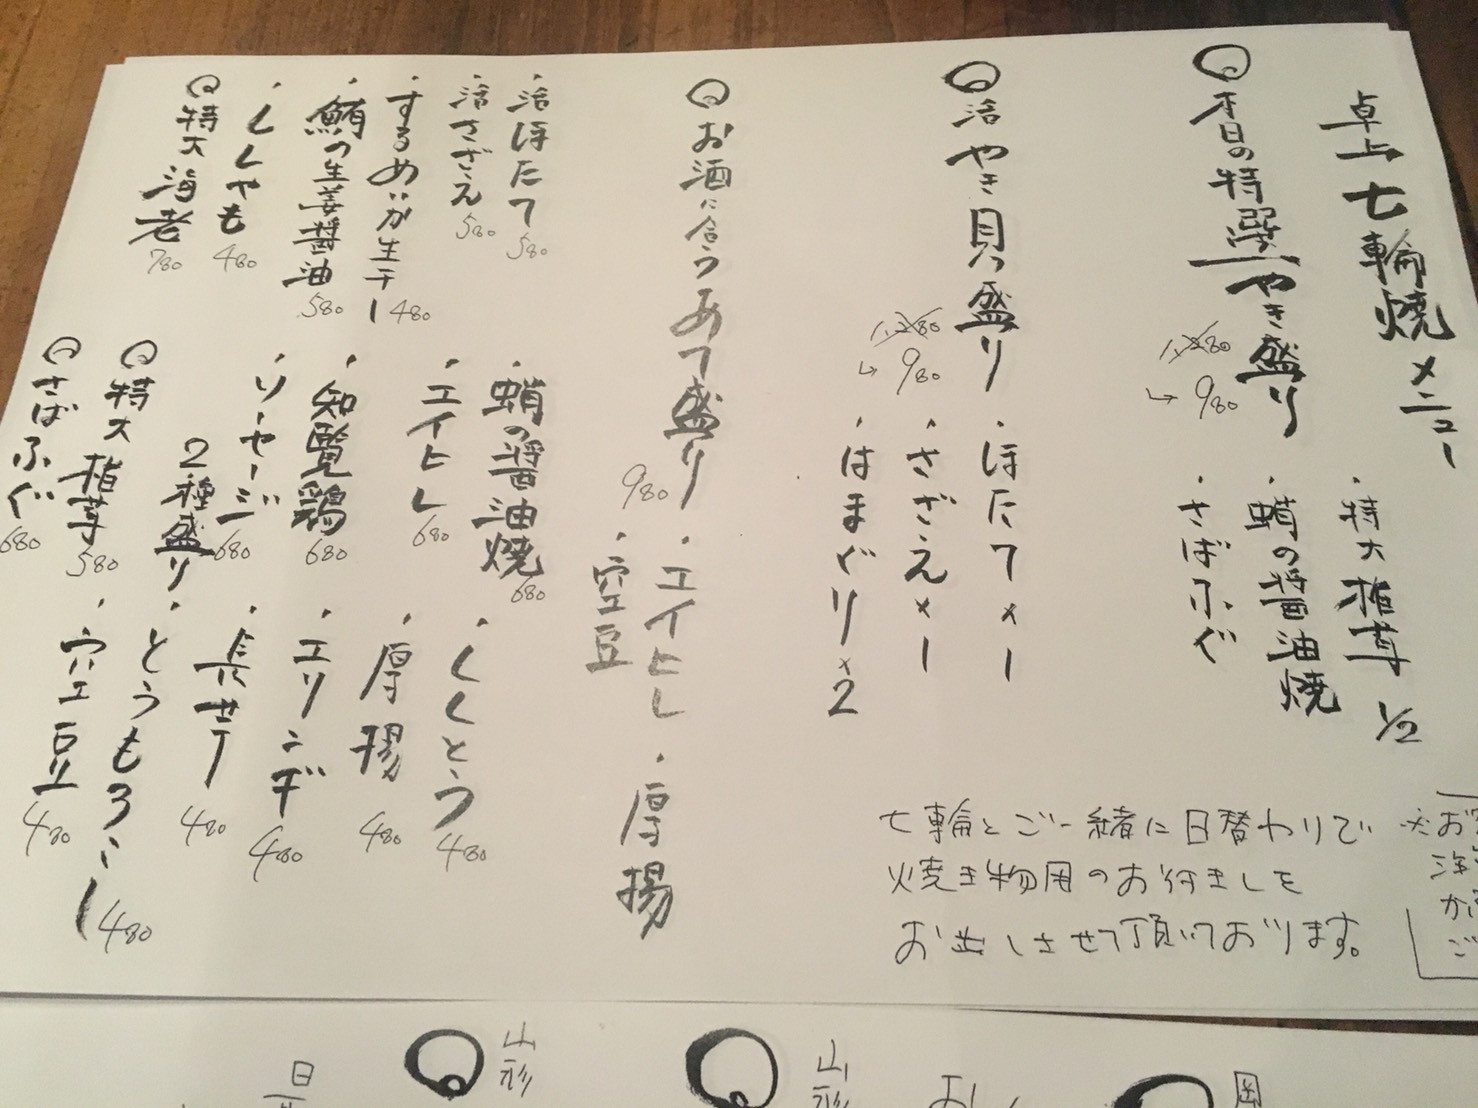 卓上七輪焼メニュー
本日の特選やき盛り
1,280
→980
・特大椎茸1/2
・蛸の醤油焼
・さばふぐ
活やき貝盛り
1,280
→980
・ほたて×1
・さざえ×1
・はまぐり×2
お酒に合うあて盛り
980
・エイヒレ
・空豆
・厚揚
・活ほたて 580
・活さざえ 580
・するめいか生干し 480
・鮪の生姜醤油 580
・ししゃも 480
特大海老 780
・蛸の醤油焼 680
・エイヒレ 680
・知覧鶏 680
・ソーセージ
2種盛り 680
特大椎茸 580
さばふぐ 680
・ししとう 480
・厚揚 480
・エリンギ 480
・長芋 480
・とうもろこし 480
・空豆 480
七輪とご一緒に日替わりで
焼き物用のお付ましを
お出しさせて頂いております。
山形
山形